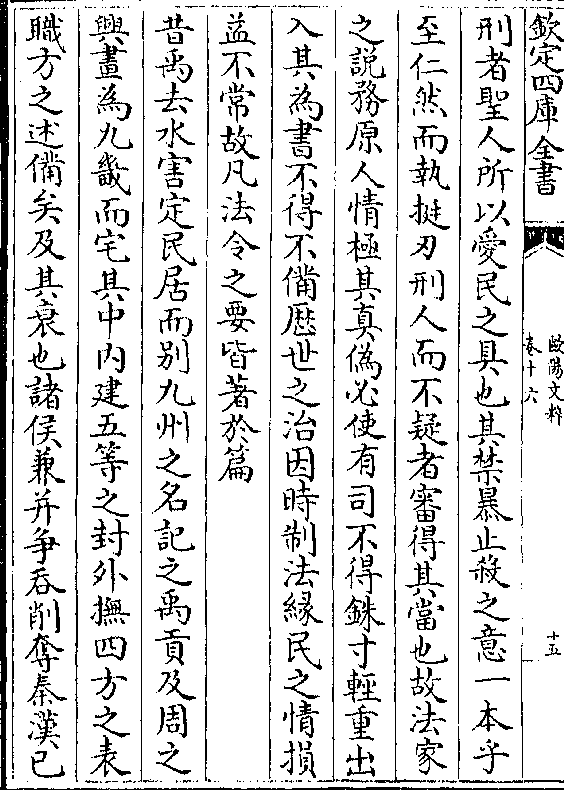 欽定四庫全書
歐陽文粹
卷十六
十五
刑者聖人所以愛民之具也其禁暴止殺之意一本乎
至仁然而執挺刃刑人而不疑者審得其當也故法家
之説務原人情極其真偽必使有司不得銖寸輕重出
入其為書不得不備歴世之治因時制法緣民之情損
益不常故凡法令之要皆著於篇
昔禹去水害定民居而别九州之名記之禹貢及周之
興畫為九畿而宅其中内建五等之封外撫四方之表
職方之述備矣及其衰也諸侯兼并爭吞削奪秦漢已